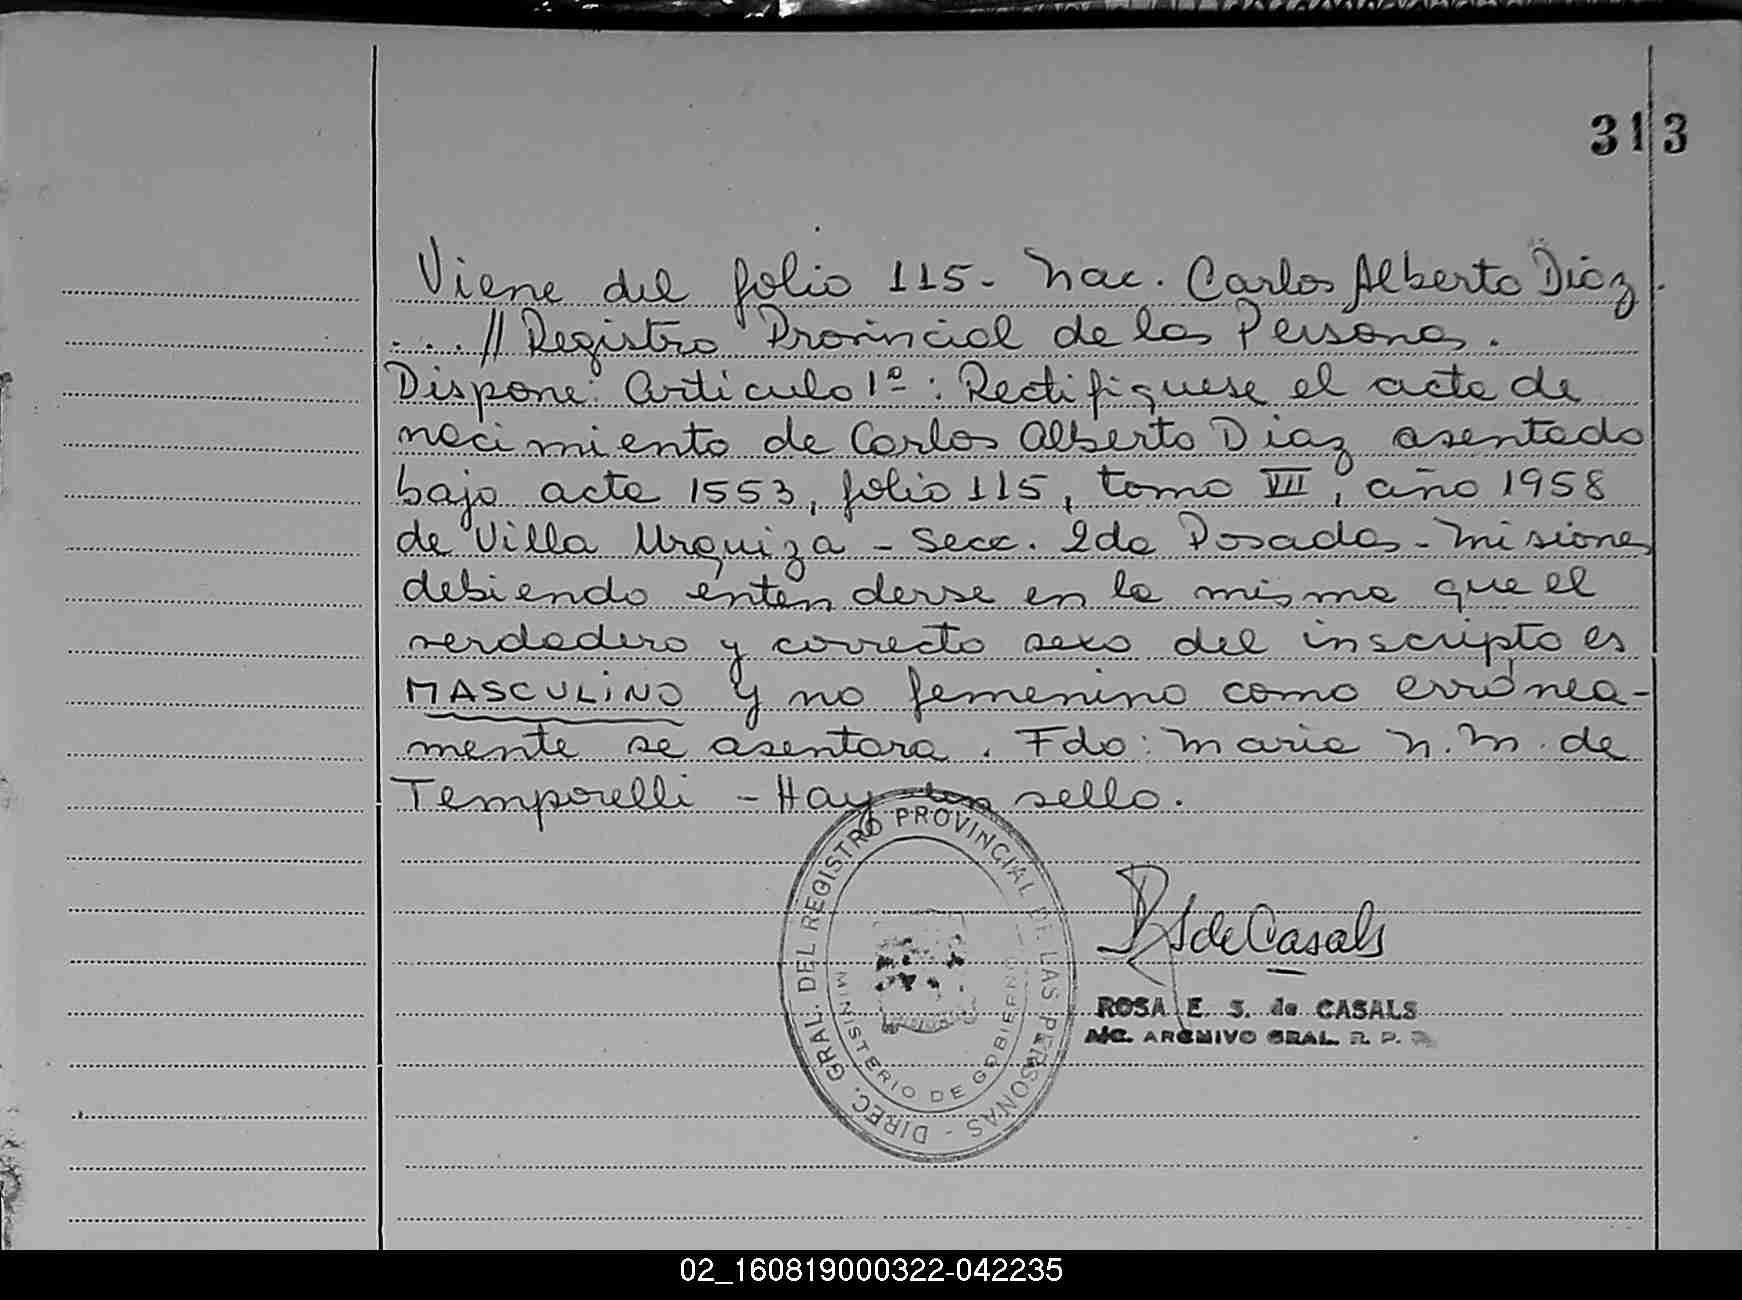 313
Viene del folio 115- Nac. Carlos Alberto Díaz.
... // Registro Provincial de las Personas.
Dispone: Artículo 1º: Rectifíquese el acta de
nacimiento de Carlos Alberto Díaz asentado
bajo acta 1553, folio 115, tomo VII, año 1958
de Villa Urquiza - Secc. 2da Posadas - Misiones
debiendo entenderse en la misma que el
verdadero y correcto sexo del inscripto es
MASCULINO y no femenino como errónea-
mente se asentara. Fdo: Maria N. M. de
Temporelli - Hay un sello.
DIREC. GRAL. DEL REGISTRO PROVINCIAL DE LAS PERSONAS -
MINISTERIO DE GOBIERNO
RS de Casals
ROSA E. S. de CASALS
ARCHIVO GRAL. R. P.
02_160819000322-042235